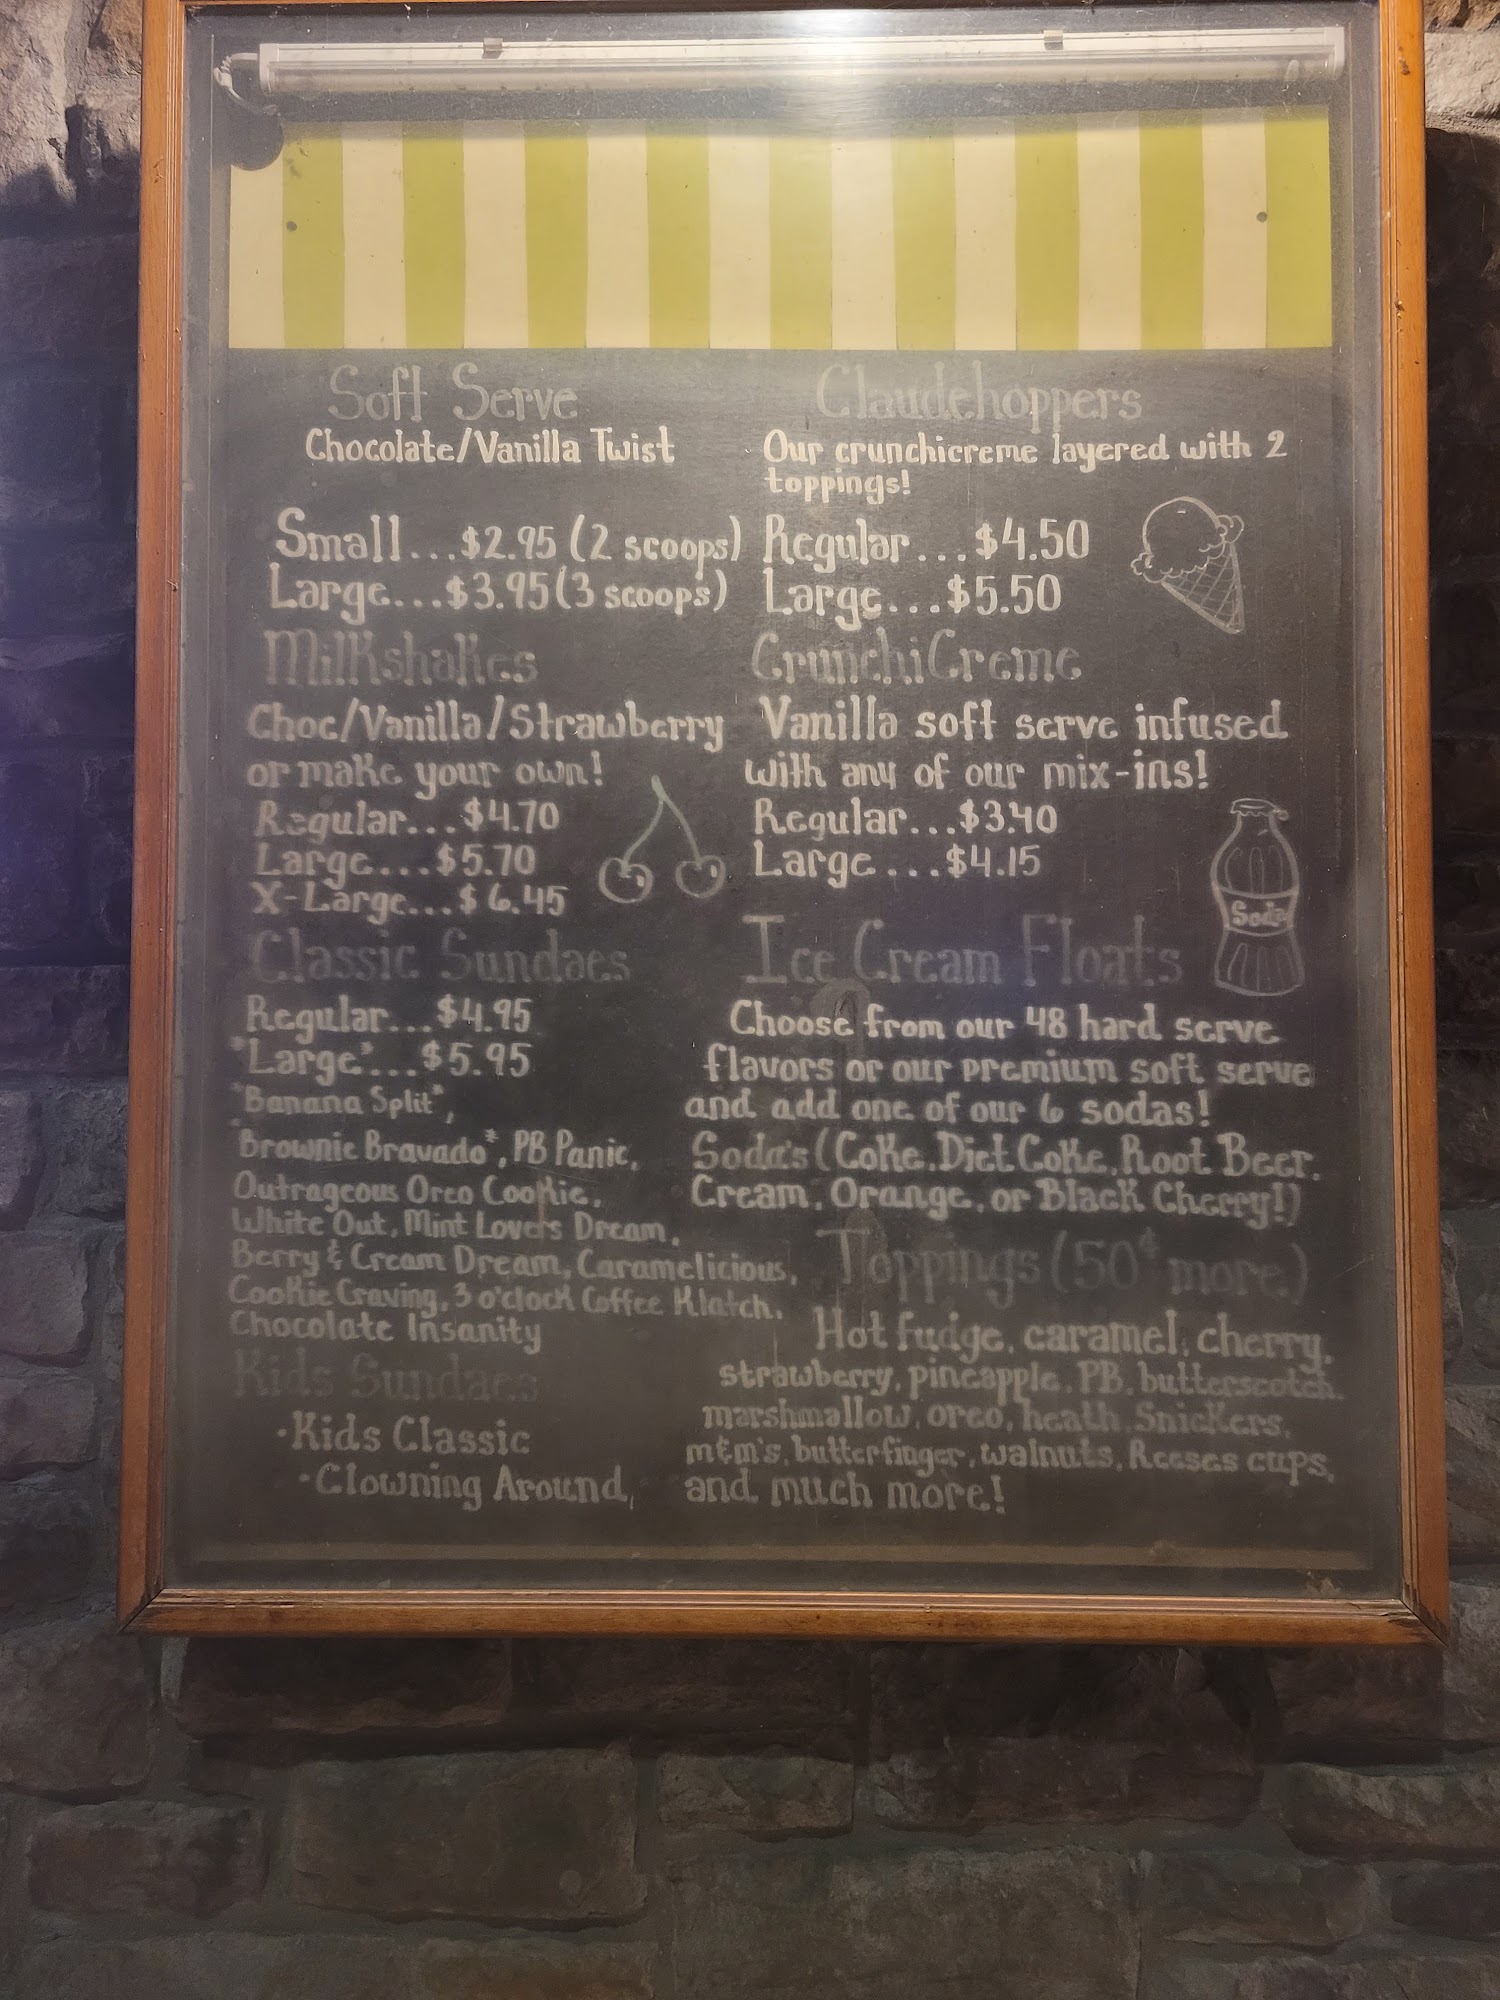 Soft Serve
Chocolate/Vanilla Twist
Small...$2.95 (2 scoops)
Large...$3.95 (3 scoops)
Milkshakes
Choc/Vanilla/Strawberry
or make your own!
Regular...$4.70
Large...$5.70
X-Large...$6.45
Classic Sundaes
Regular...$4.95
*Large*...$5.95
*Banana Split*,
Brownie Bravado*, PB Panic,
Outrageous Oreo Cookie,
White Out, Mint Lovers Dream,
Berry & Cream Dream, Caramelicious,
Cookie Craving, 3 o'clock Coffee Klatch,
Chocolate Insanity
Kids Sundaes
·Kids Classic
·Clowning Around
Claudehoppers
Our crunchicreme layered with 2
toppings!
Regular...$4.50
Large...$5.50
CrunchiCreme
Vanilla soft serve infused
with any of our mix-ins!
Regular...$3.40
Large...$4.15
Soda
Ice Cream Floats
Choose from our 48 hard serve
flavors or our premium soft serve
and add one of our 6 sodas!
Soda's (Coke, Diet Coke, Root Beer,
Cream, Orange, or Black Cherry!)
Toppings (50¢ more)
Hot fudge, caramel, cherry,
strawberry, pineapple, PB, butterscotch,
marshmallow, oreo, heath, Snickers,
m&m's, butterfinger, walnuts, Reeses cups,
and much more!